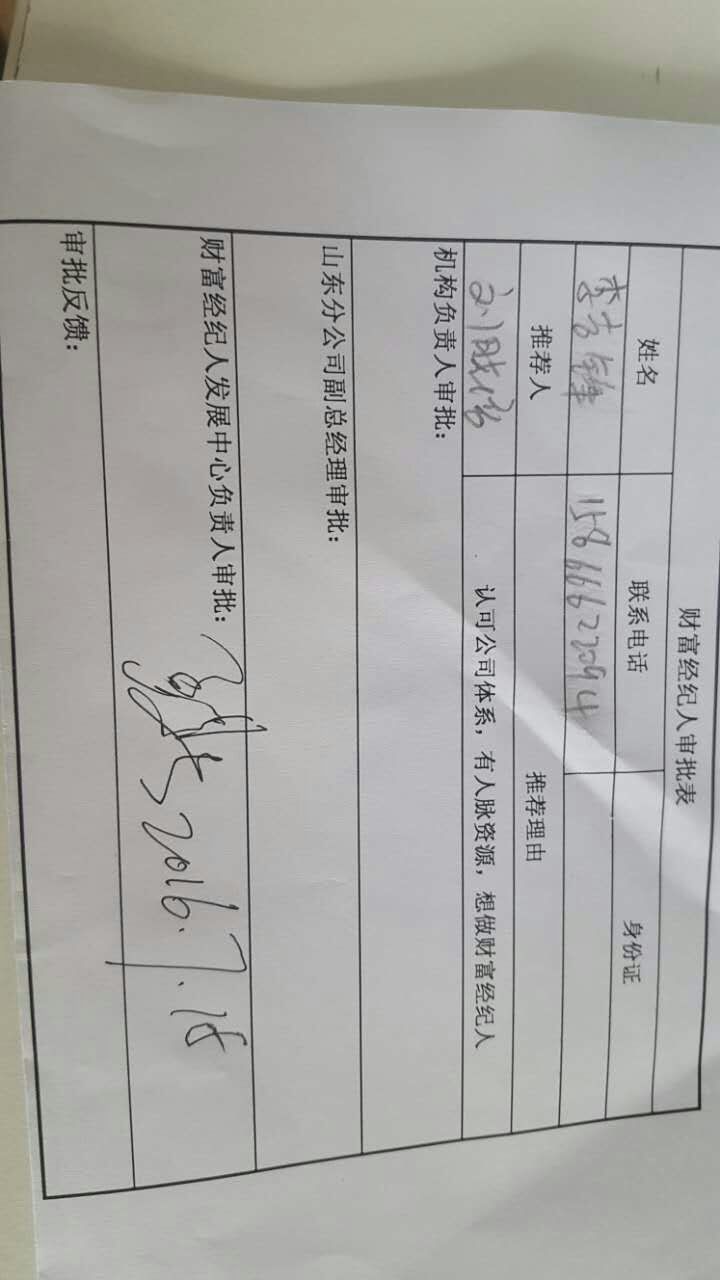 财富经纪人审批表
姓名 联系电话 身份证
李吉锋 15866622094
推荐人 推荐理由
刘 认可公司体系，有人脉资源，想做财富经纪人
机构负责人审批：
山东分公司副总经理审批：
财富经纪人发展中心负责人审批： 2016.7.18
审批反馈：